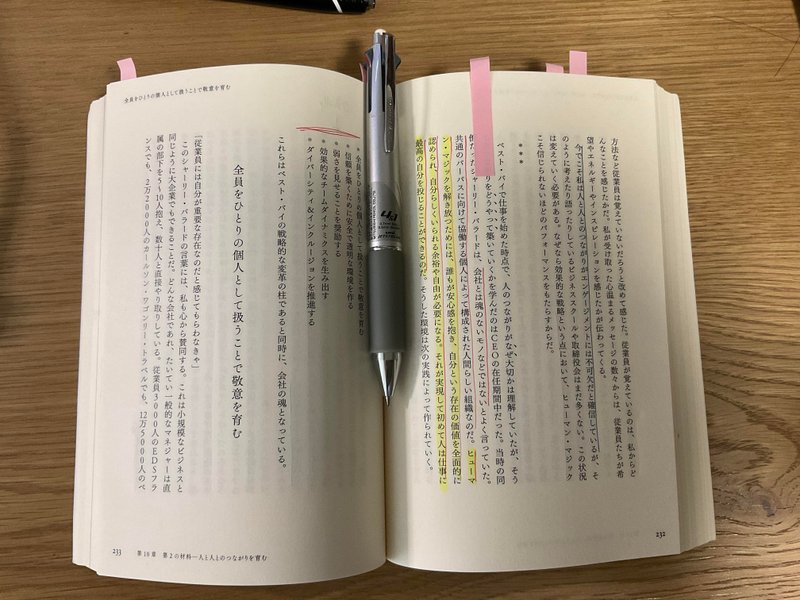 方法など従業員は覚えていないだろうと改めて感じた。従業員が覚えているのは、私からど
んなことを感じたかだ。私が受け取った心温まるメッセージの数々からは、従業員たちが希
望やエネルギーやインスピレーションを感じたかが伝わってくる。
今でこそ私は人と人とのつながりがエンゲージメントには不可欠だと確信しているが、そ
のように考えたり語ったりしているビジネススクールや取締役会はまだ多くない。この状況
は変えていく必要がある。なぜなら効果的な戦略という点において、ヒューマン・マジック
こそ信じられないほどのパフォーマンスをもたらすからだ。
***
ベスト・バイで仕事を始めた時点で、人のつながりがなぜ大切かは理解していたが、そう
りをどうやって築いていくかを学んだのはCEOの在任期間中だった。当時の同
僚だったシャーリー・バラードは、会社とは魂のないモノなどではないとよく言っていた。
共通のパーパスに向けて協働する個人によって構成された人間らしい組織なのだ。ヒューマ
ン・マジックを解き放つためには、誰もが安心感を抱き、自分という存在の価値を全面的に
認められ、自分らしくいられる余裕や自由が必要になる。それが実現して初めて人は仕事に
最高の自分を投じることができるのだ。そうした環境は次の実践によって作られていく。
232
全員をひとりの個人として扱うことで敬意を育む
* 全員をひとりの個人として扱うことで敬意を育む
* 信頼を築くために安全で透明な環境を作る
* 弱さを見せることを奨励する
* 効果的なチームダイナミクスを生み出す
* ダイバーシティ&インクルージョンを推進する
これらはベスト・バイの戦略的な変革の柱であると同時に、会社の魂となっている。
全員をひとりの個人として扱うことで敬意を育む
「従業員には自分が重要な存在なのだと感じてもらわなきゃ」
このシャーリー・バラードの言葉には、私も心から賛同する。これは小規模なビジネスと
同じように大企業でもできることだ。どんな会社であれ、たいてい一般的なマネジャーは直
属の部下を5〜10人抱え、数十人と直接やり取りしている。従業員3000人のEDSフラ
ンスでも、2万2000人のカールソン・ワゴンリー・トラベルでも、12万5000人のベ
233 第16章 第2の材料—人と人とのつながりを育む